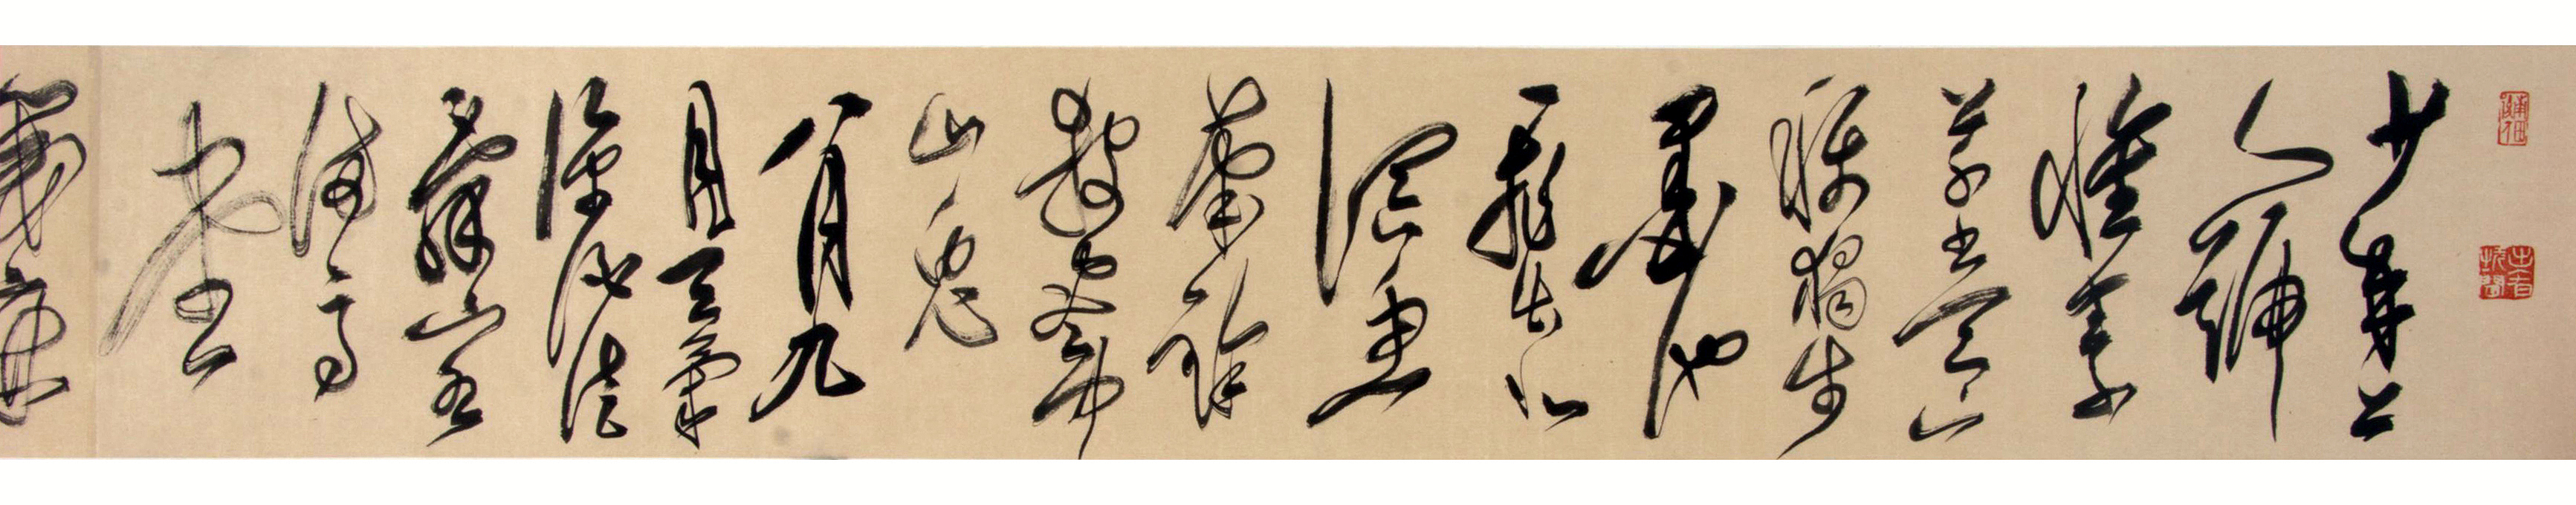 少年上
人號
懷素
草書天下
稱獨步
墨池
飛出北
溟魚
筆鋒
殺盡中
山兔
八月九
月天氣
涼酒徒
辭客
滿高
堂